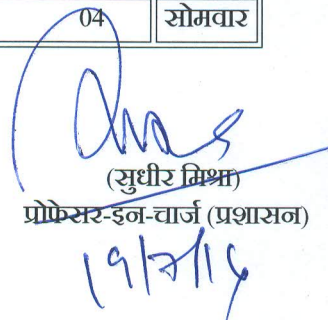 04 सोमवार
(सुधीर मिश्रा)
प्रोफेसर-इन-चार्ज (प्रशासन)
19/7/16